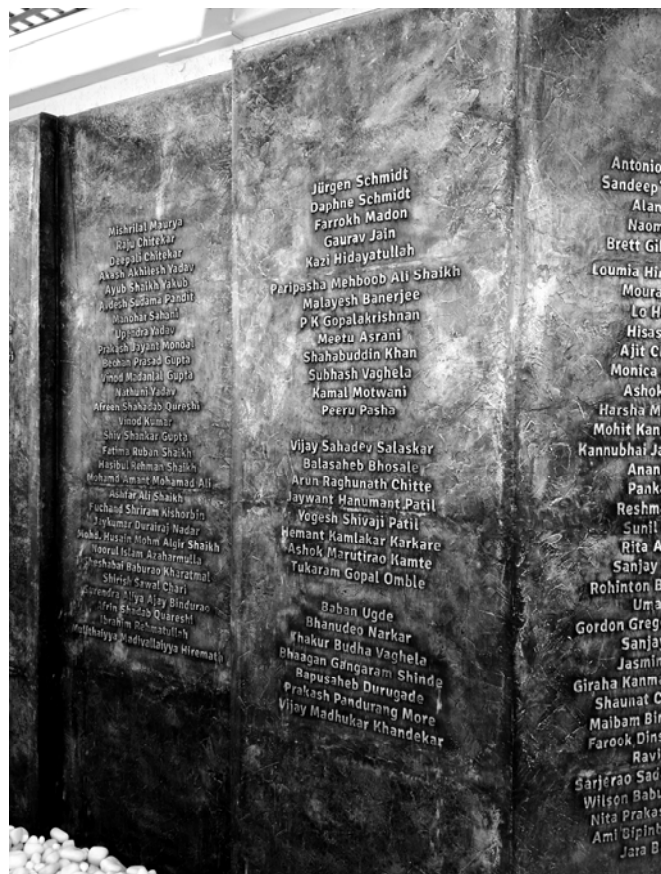 Mishrilal Maurya
Raju Chitekar
Deepali Chitekar
Akash Akhilesh Yadav
Ayub Shaikh Yakub
Avdesh Sudama Pandit
Manohar Sahani
Upendra Yadav
Prakash Jayant Mondal
Bechan Prasad Gupta
Vinod Madanlal Gupta
Nathuni Yadav
Afreen Shahadab Qureshi
Vinod Kumar
Shiv Shankar Gupta
Fatima Ruban Shaikh
Hasibul Rehman Shaikh
Mohamd Amant Mohamad Ali
Ashfar Ali Shaikh
Fuchand Shriram Kishorbin
Jaykumar Durairaj Nadar
Mohd. Husain Mohm Algir Shaikh
Noorul Islam Azaharmulla
Baburao Kharatmal
Shirish Sawal Chari
Aliya Ajay Bindurao
Shadab Quareshi
Ibrahim Rehmatullah
Madivallaiyya Hiremath
Jürgen Schmidt
Daphne Schmidt
Farrokh Madon
Gaurav Jain
Kazi Hidayatullah
Peripasha Mehboob Ali Shaikh
Malayesh Banerjee
P K Gopalakrishnan
Meetu Asrani
Shahabuddin Khan
Subhash Vaghela
Kamal Motwani
Peeru Pasha
Vijay Sahadev Salaskar
Balasaheb Bhosale
Arun Raghunath Chitte
Jaywant Hanumant Patil
Yogesh Shivaji Patil
Hemant Kamlakar Karkare
Ashok Marutirao Kamte
Tukaram Gopal Omble
Baban Ugde
Bhanudeo Narkar
Thakur Budha Vaghela
Bhaagan Gangaram Shinde
Bapusaheb Durugade
Prakash Pandurang More
Vijay Madhukar Khandekar
Antonio
Sandeep
Alan
Naom
Brett Gil
Loumia Hir
Moura
Lo H
Hisas
Ajit C
Monica
Ashok
Harsha M
Mohit Kan
Kannubhai Ja
Anan
Panka
Reshm
Sunil
Rita A
Sanjay
Rohinton B
Uma
Gordon Greg
Sanjay
Jasmin
Giraha Kanma
Shaunat C
Maibam Bin
Farook Dins
Ravi
Sarjerao Sad
Wilson Babu
Nita Prakas
Ami Bipinb
Jara B